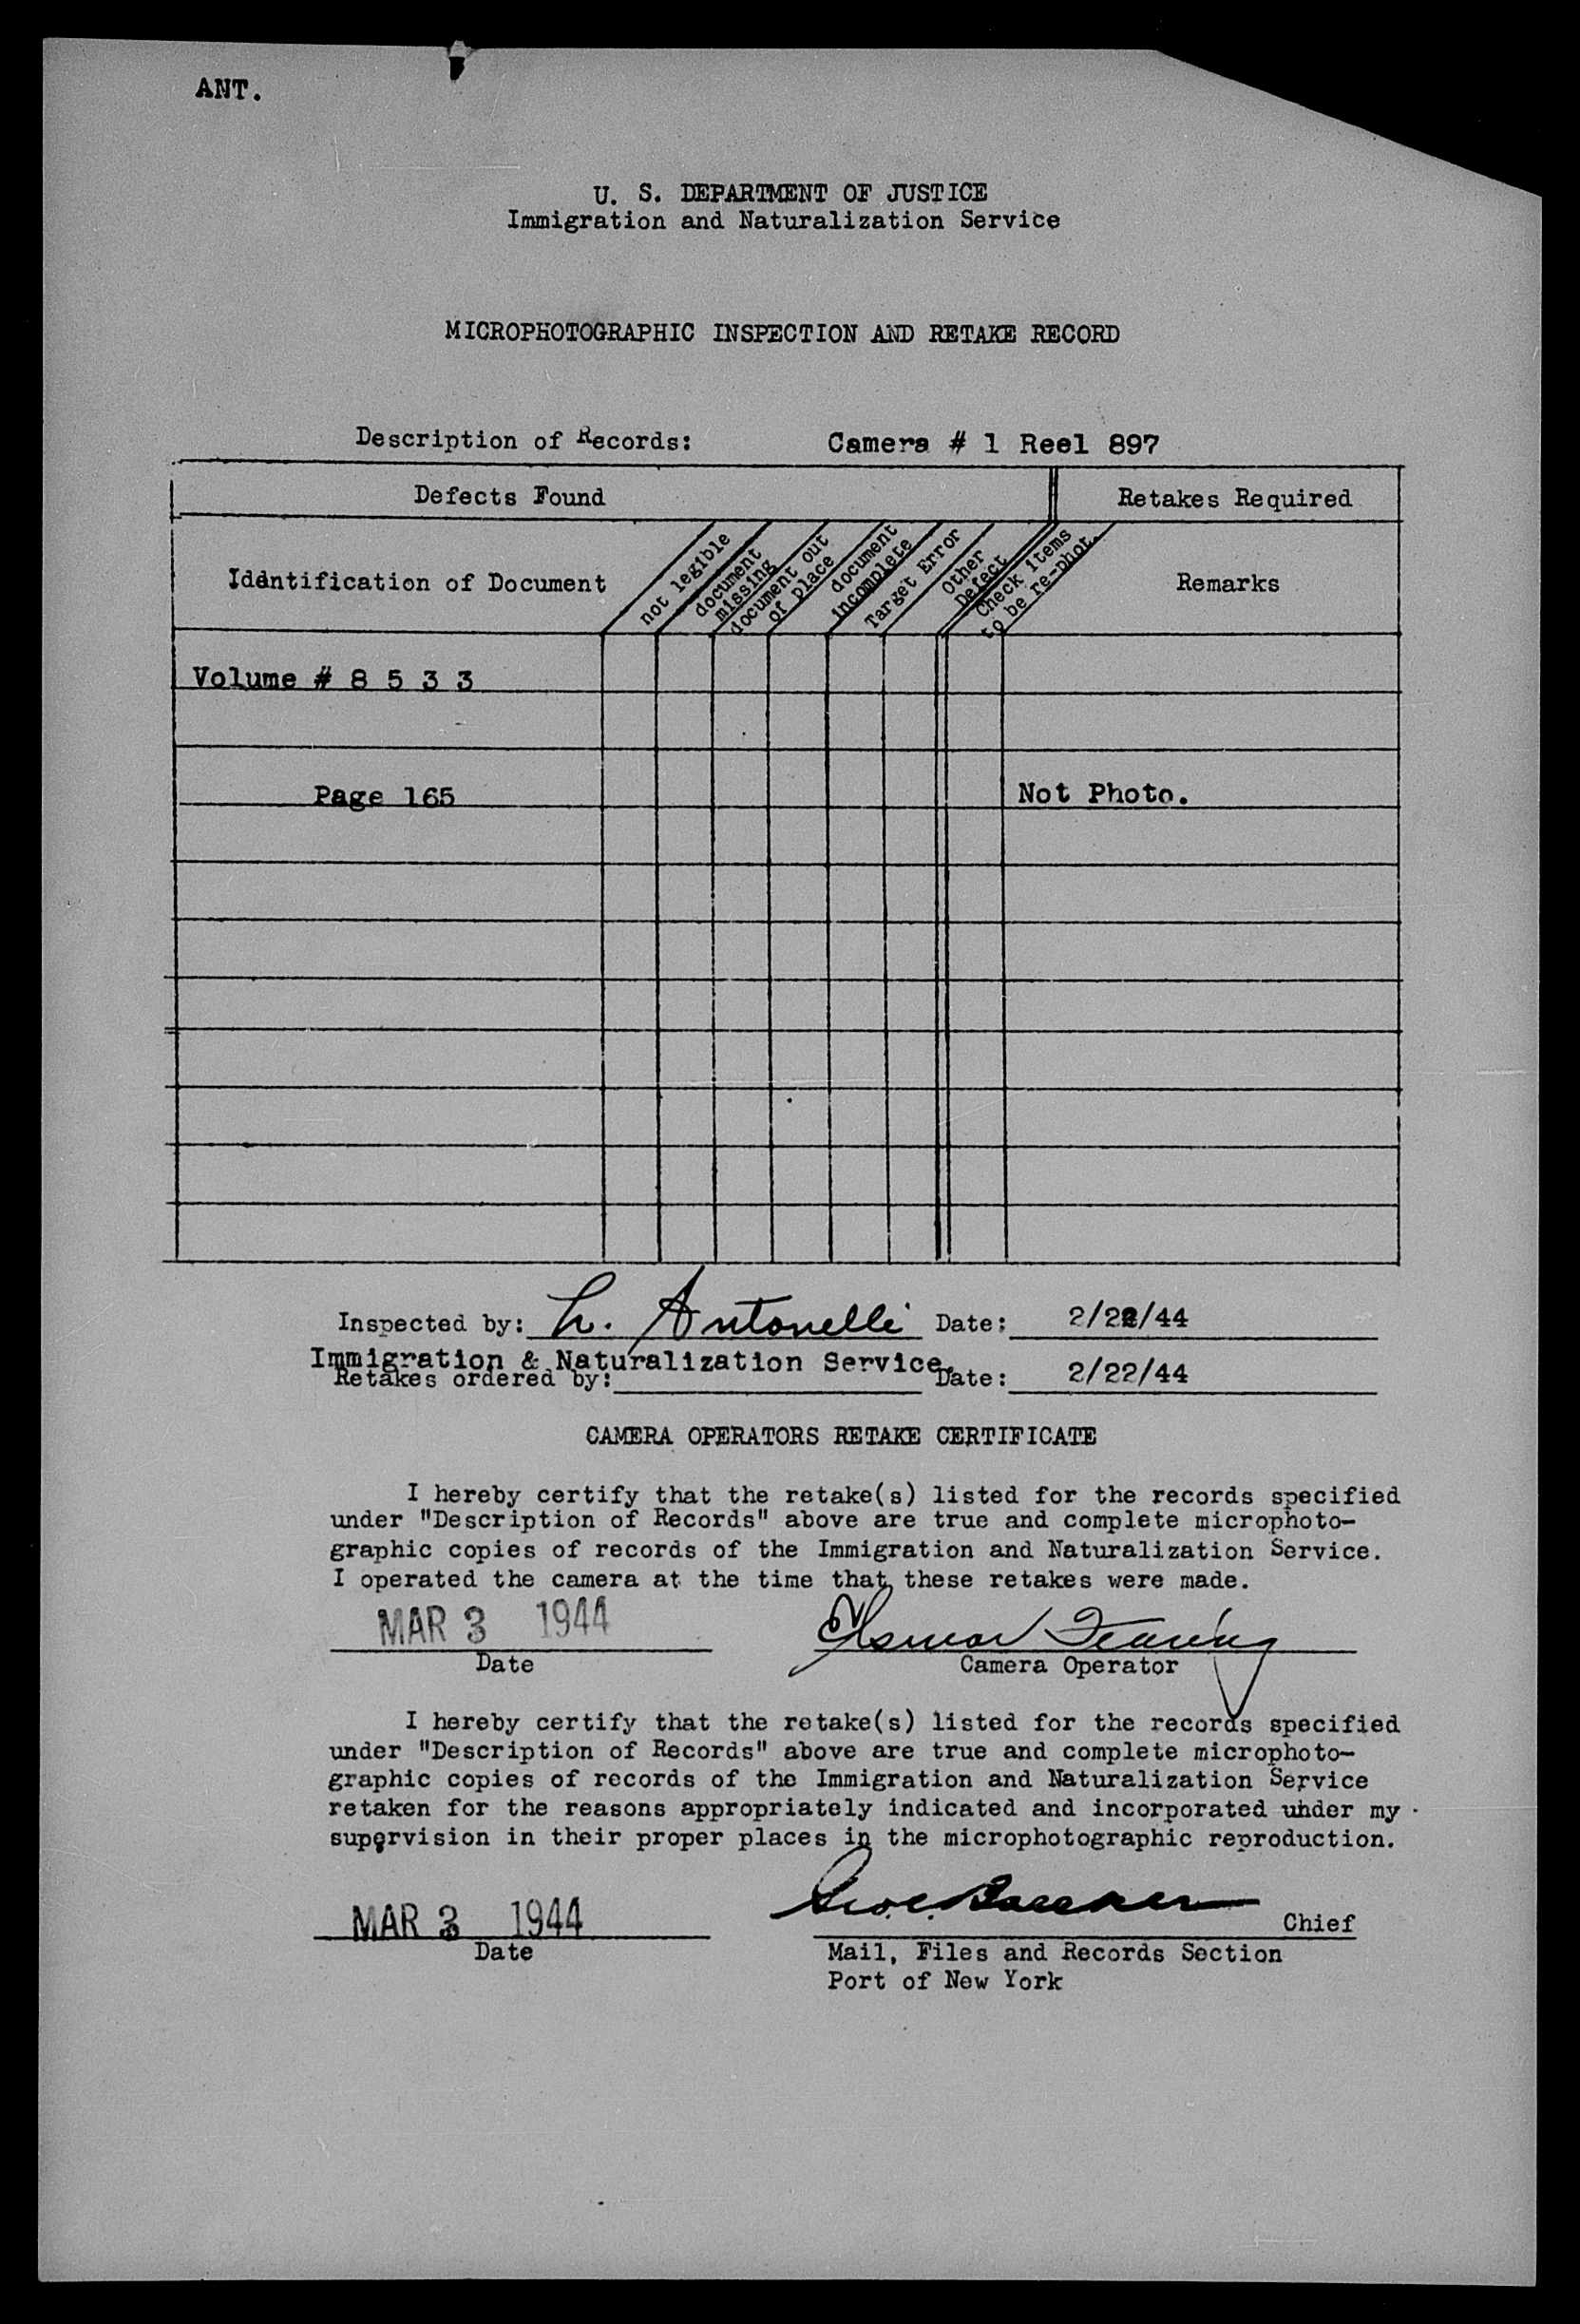 ANT.
U. S. DEPARTMENT OF JUSTICE
Immigration and Naturalization Service
MICROPHOTOGRAPHIC INSPECTION AND RETAKE RECORD
Description of Records: Camera # 1 Reel 897
Defects Found Retakes Required
Idantification of Document
not legible
document missing
document out of place
document incomplete
Target Error
Other Defect
Check items to be re-phot.
Remarks
Volume # 8 5 3 3
Page 165 Not Photo.
Inspected by: L. Antonelli Date: 2/22/44
Immigration & Naturalization Service.
Retakes ordered by: Date: 2/22/44
CAMERA OPERATORS RETAKE CERTIFICATE
I hereby certify that the retake(s) listed for the records specified
under "Description of Records" above are true and complete microphoto-
graphic copies of records of the Immigration and Naturalization Service.
I operated the camera at the time that these retakes were made.
MAR 3 1944
Date Camera Operator
I hereby certify that the retake(s) listed for the records specified
under "Description of Records" above are true and complete microphoto-
graphic copies of records of the Immigration and Naturalization Service
retaken for the reasons appropriately indicated and incorporated under my
supervision in their proper places in the microphotographic reproduction.
MAR 3 1944 Chief
Date Mail, Files and Records Section
Port of New York